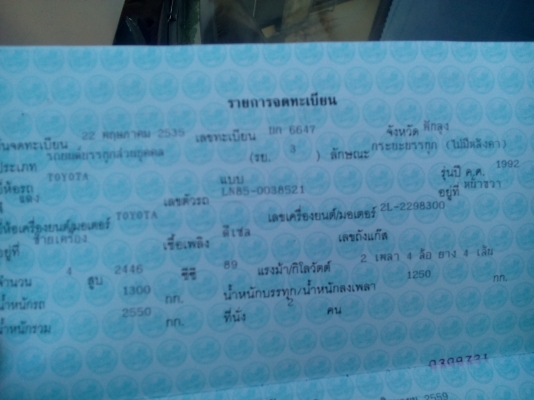 รายการจดทะเบียน
วันจดทะเบียน 22 พฤษภาคม 2535 เลขทะเบียน 6647 จังหวัด พัทลุง
ประเภท รถยนต์บรรทุกส่วนบุคคล (รย. 3 ) ลักษณะ กระบะบรรทุก (ไม่มีหลังคา)
ยี่ห้อรถ TOYOTA แบบ รุ่นปี ค.ศ. 1992
สี แดง เลขตัวรถ LN85-0038521 อยู่ที่ หน้าขวา
ยี่ห้อเครื่องยนต์/มอเตอร์ TOYOTA เลขเครื่องยนต์/มอเตอร์ 2L-2298300
อยู่ที่ ซ้ายเครื่อง เชื้อเพลิง ดีเซล เลขถังแก๊ส
จำนวน 4 สูบ 2446 ซีซี 89 แรงม้า/กิโลวัตต์ 2 เพลา 4 ล้อ ยาง 4 เส้น
น้ำหนักรถ 1300 กก. น้ำหนักบรรทุก/น้ำหนักลงเพลา 1250 กก.
น้ำหนักรวม 2550 กก. ที่นั่ง 2 คน
2559